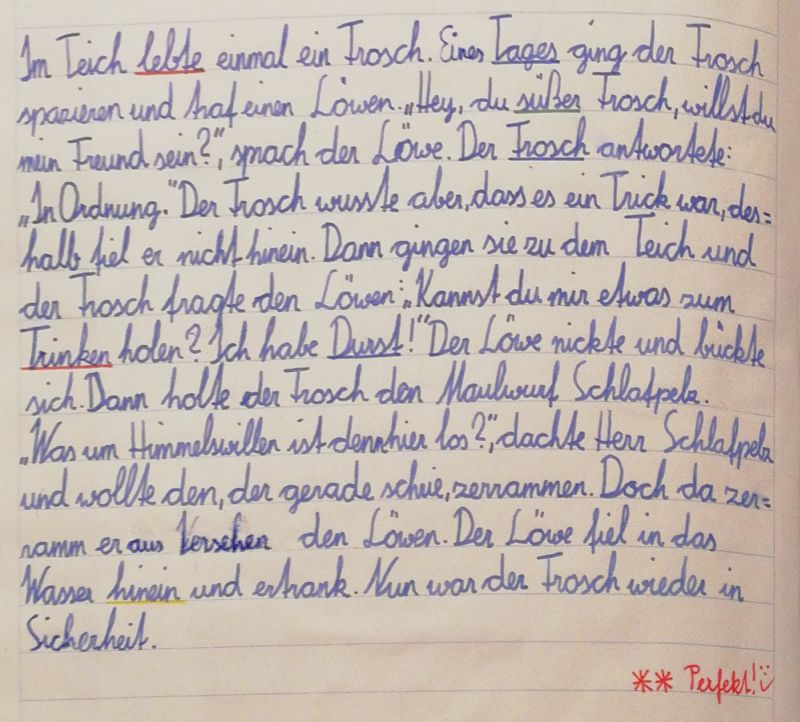 Im Teich lebte einmal ein Frosch. Eines Tages ging der Frosch
spazieren und traf einen Löwen. „Hey, du süßer Frosch, willst du
mein Freund sein?", sprach der Löwe. Der Frosch antwortete:
„In Ordnung." Der Frosch wusste aber, dass es ein Trick war, des=
halb fiel er nicht hinein. Dann gingen sie zu dem Teich und
der Frosch fragte den Löwen: „Kannst du mir etwas zum
Trinken holen? Ich habe Durst!" Der Löwe nickte und bückte
sich. Dann holte der Frosch den Maulwurf Schlafpelz.
„Was um Himmelswillen ist denn hier los?", dachte Herr Schlafpelz
und wollte den, der gerade schrie, zerrammen. Doch da zer=
ramm er aus Versehen den Löwen. Der Löwe fiel in das
Wasser hinein und ertrank. Nun war der Frosch wieder in
Sicherheit.
** Perfekt! :)